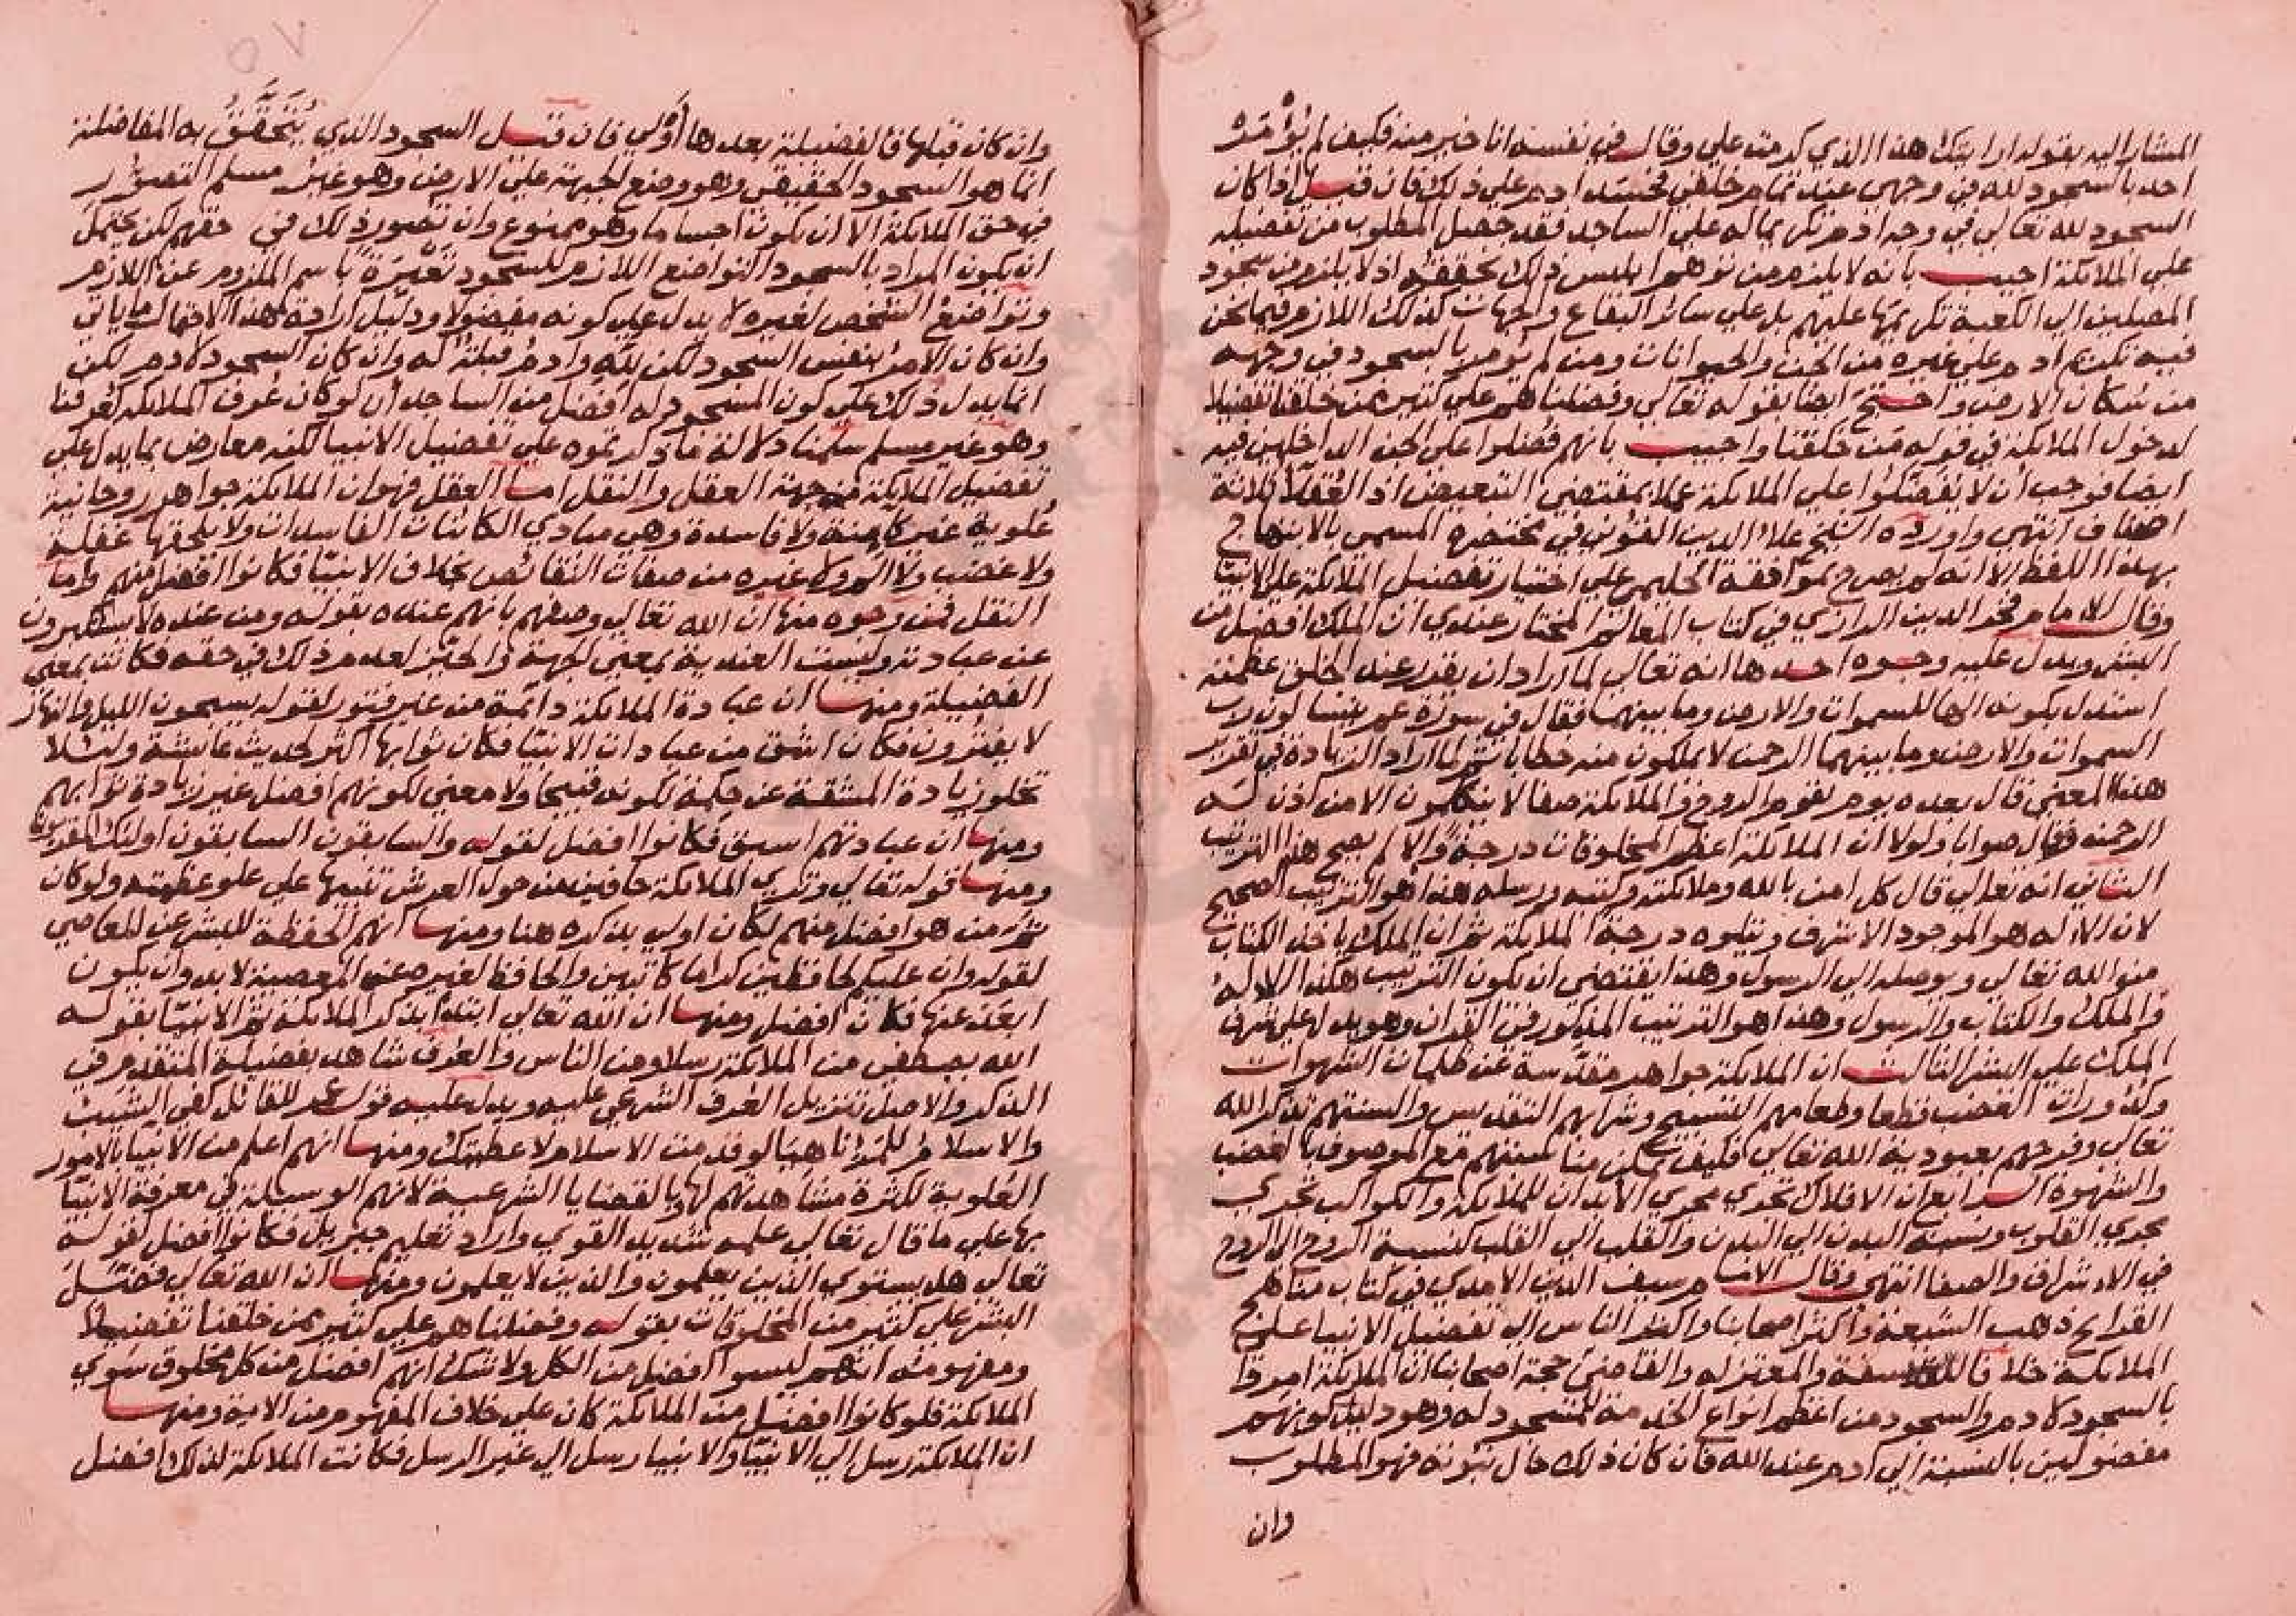 المشار اليه بقوله ارايتك هذا الذي كرمت علي وقال في نفسه انا خير منه فكيف لم يؤمر
احد بالسجود لله في وجهي عند تمام خلقي فحسد ادم علي ذلك فان قيل اذا كان
السجود لله تعالي في وجه ادم تكريما له علي الساجد فقد حصل المطلوب من تفضيله
علي الملايكة اجيب بانه لا يلزم من توهم ابليس ذلك تحققه اذ لا يلزم من سجود
المصلين الي الكعبة تكريمها عليهم بل علي سائر البقاع والجهات كذلك اللازم فيما نحن
فيه تكريم ادم علي غيره من الجن والحيوانات ومن لم يؤمر بالسجود في وجهه
من سكان الارض واحتج ايضا بقوله تعالي وفضلناهم علي كثير ممن خلقنا تفضيلا
لدخول الملايكة في قوله ممن خلقنا واجيب بانهم فضلوا علي الجن الداخلين فيه
ايضا فوجب ان لا يفضلوا علي الملايكة عملا بمقتضي التبعيض اذ العقلا ثلاثة
اصناف انتهي واورده الشيخ علاء الدين القونوي في مختصره المسمي بالابتهاج
بهذا اللفظ الا انه لم يصرح بموافقة الحليمي علي اختيار تفضيل الملايكة علي الانبيا
وقال الامام فخر الدين الرازي في كتاب المعالم المختار عندي ان الملك افضل من
البشر ويدل عليه وجوه احدها انه تعالي لما اراد ان يقرر عند الخلق عظمته
استدل بكونه الها للسموات والارض وما بينهما فقال في سورة عم يتسالون رب
السموات والارض وما بينهما الرحمن لا يملكون منه خطابا ثم لما اراد الزيادة في تقرير
هذا المعني قال بعده يوم يقوم الروح والملايكة صفا لا يتكلمون الا من اذن له
الرحمن وقال صوابا ولولا ان الملايكة اعظم المخلوقات درجة والا لم يصح هذا الترتيب
الثاني انه تعالي قال كل امن بالله وملايكته وكتبه ورسله هذا هو الترتيب الصحيح
لان الاله هو الموجود الاشرف ويتلوه درجة الملايكة ثم ان الملك ياخذ الكتاب
من الله تعالي ويوصله الي الرسول وهذا يقتضي ان يكون الترتيب هكذا الاله
والملك والكتاب والرسول وهذا هو الترتيب المذكور في القران وهو يدل علي شرف
الملك علي البشر الثالث ان الملايكة جواهر مقدسة عن ظلمات الشهوات
وكدورات الغضب قطعا وطعامهم التسبيح وشرابهم التقديس والسنتهم تذكر الله
تعالي وفرحهم بعبودية الله تعالي فكيف يمكن مناسبتهم مع الموصوف بالغضب
والشهوة الرابع ان الافلاك تجري مجري الابدان للملايكة والكواكب تجري
مجري القلوب ونسبة البدن الي البدن والقلب الي القلب كنسبة الروح الي الروح
في الاشراق والصفا انتهي وقال الامام سيف الدين الامدي في كتاب منائح
القرائح ذهب الشيعة واكثر اصحابنا واكثر الناس الي تفضيل الانبيا علي
الملايكة خلافا للفلاسفة والمعتزله والقاضي حجة اصحابنا ان الملايكة امروا
بالسجود لادم والسجود من اعظم انواع الخدمة للمسجود له وهو دليل كونهم
مفضولين بالنسبة الي ادم عند الله فان كان ذلك حال نبوته فهو المطلوب
وان
وان كان قبلها فالفضيلة بعدها أولي فان قيل السجود الذي يتحقق به المفاضلة
انما هو السجود الحقيقي وهو وضع الجبهة علي الارض وهو غير مسلم التصور
في حق الملايكة الا ان يكون اجساما وهو ممنوع وان تصور ذلك في حقهم لكن يحتمل
ان يكون المراد بالسجود التواضع اللازم للسجود تعبيرة باسم الملزوم عن اللازم
وتواضع الشخص لغيره لا يدل علي كونه مفضولا ودليل ارادة هذا الاحتمال ما ياتي
وان كان الامر بنفس السجود لكن لله وادم قبلة له وان كان السجود لادم لكن
انما يدل ذلك علي كون المسجود له افضل من الساجد ان لو كان عرف الملايكة كعرفنا
وهو غير مسلم سلمنا دلالة ما ذكرتموه علي تفضيل الانبيا لكنه معارض بما يدل علي
تفضيل الملايكة من جهة العقل والنقل اما العقل فهو ان الملايكة جواهر روحانية
علوية غير كاينة ولا فاسدة وهي مبادي الكائنات الفاسدات ولا يلحقها غفلة
ولا غضب ولا الم ولا غيره من صفات النقائص بخلاف الانبيا فكانوا افضل منهم واما
النقل فمن وجوه منها ان الله تعالي وصفهم بانهم عنده بقوله ومن عنده لا يستكبرون
عن عبادته وليست العندية بمعني الجهة والحيز لعدم ذلك في حقه فكانت بمعني
الفضيلة ومنها ان عبادة الملايكة دائمة من غير فتور لقوله يسبحون الليل والنهار
لا يفترون فكان اشق من عبادات الانبيا فكان ثوابها اكثر لحديث عائشة وليلا
تخلو زيادة المشقة عن حكمة لكونه قبيحا ولا معني لكونهم افضل غير زيادة ثوابهم
ومنها ان عبادتهم اسبق فكانوا افضل لقوله والسابقون السابقون اولئك المقربون
ومنها قوله تعالي وتري الملايكة حافين من حول العرش تنبيها علي علو عظمته ولو كان
ثم من هو افضل منهم لكان اولي بذكره هنا ومنها انهم الحفظة للبشر عن المعاصي
لقوله وان عليكم لحافظين كراما كاتبين والحافظ لغيره عن المعصية لا بد وان يكون
ابعد عنها فكان افضل ومنها ان الله تعالي ابتدا بذكر الملايكة ثم الانبيا بقوله
الله يصطفي من الملايكة رسلا ومن الناس والعرف شاهد بفضيلة المتقدم في
الذكر والاصل تنزيل العرف الشرعي عليه ويدل عليه قول عمر للقائل كفي الشيب
والاسلام للمرء ناهيا لو قدمت الاسلام لاعطيتك ومنها انهم اعلم من الانبيا بالامور
العلوية لكثرة مشاهدتهم لها وبالقضايا الشرعية لانهم الوسيلة في معرفة الانبيا
بها علي ما قال تعالي علمه شديد القوي واراد تعليم جبريل فكانوا افضل لقوله
تعالي هل يستوي الذين يعلمون والذين لا يعلمون ومنها ان الله تعالي فضل
البشر علي كثير من المخلوقات بقوله وفضلناهم علي كثير ممن خلقنا تفضيلا
ومفهومه انهم ليسوا افضل من الكل ولا شك انهم افضل من كل مخلوق سوي
الملايكة فلو كانوا افضل من الملايكة كان علي خلاف المفهوم من الاية ومنها
ان الملايكة رسل الي الانبيا والانبيا رسل الي غير الرسل فكانت الملايكة لذلك افضل